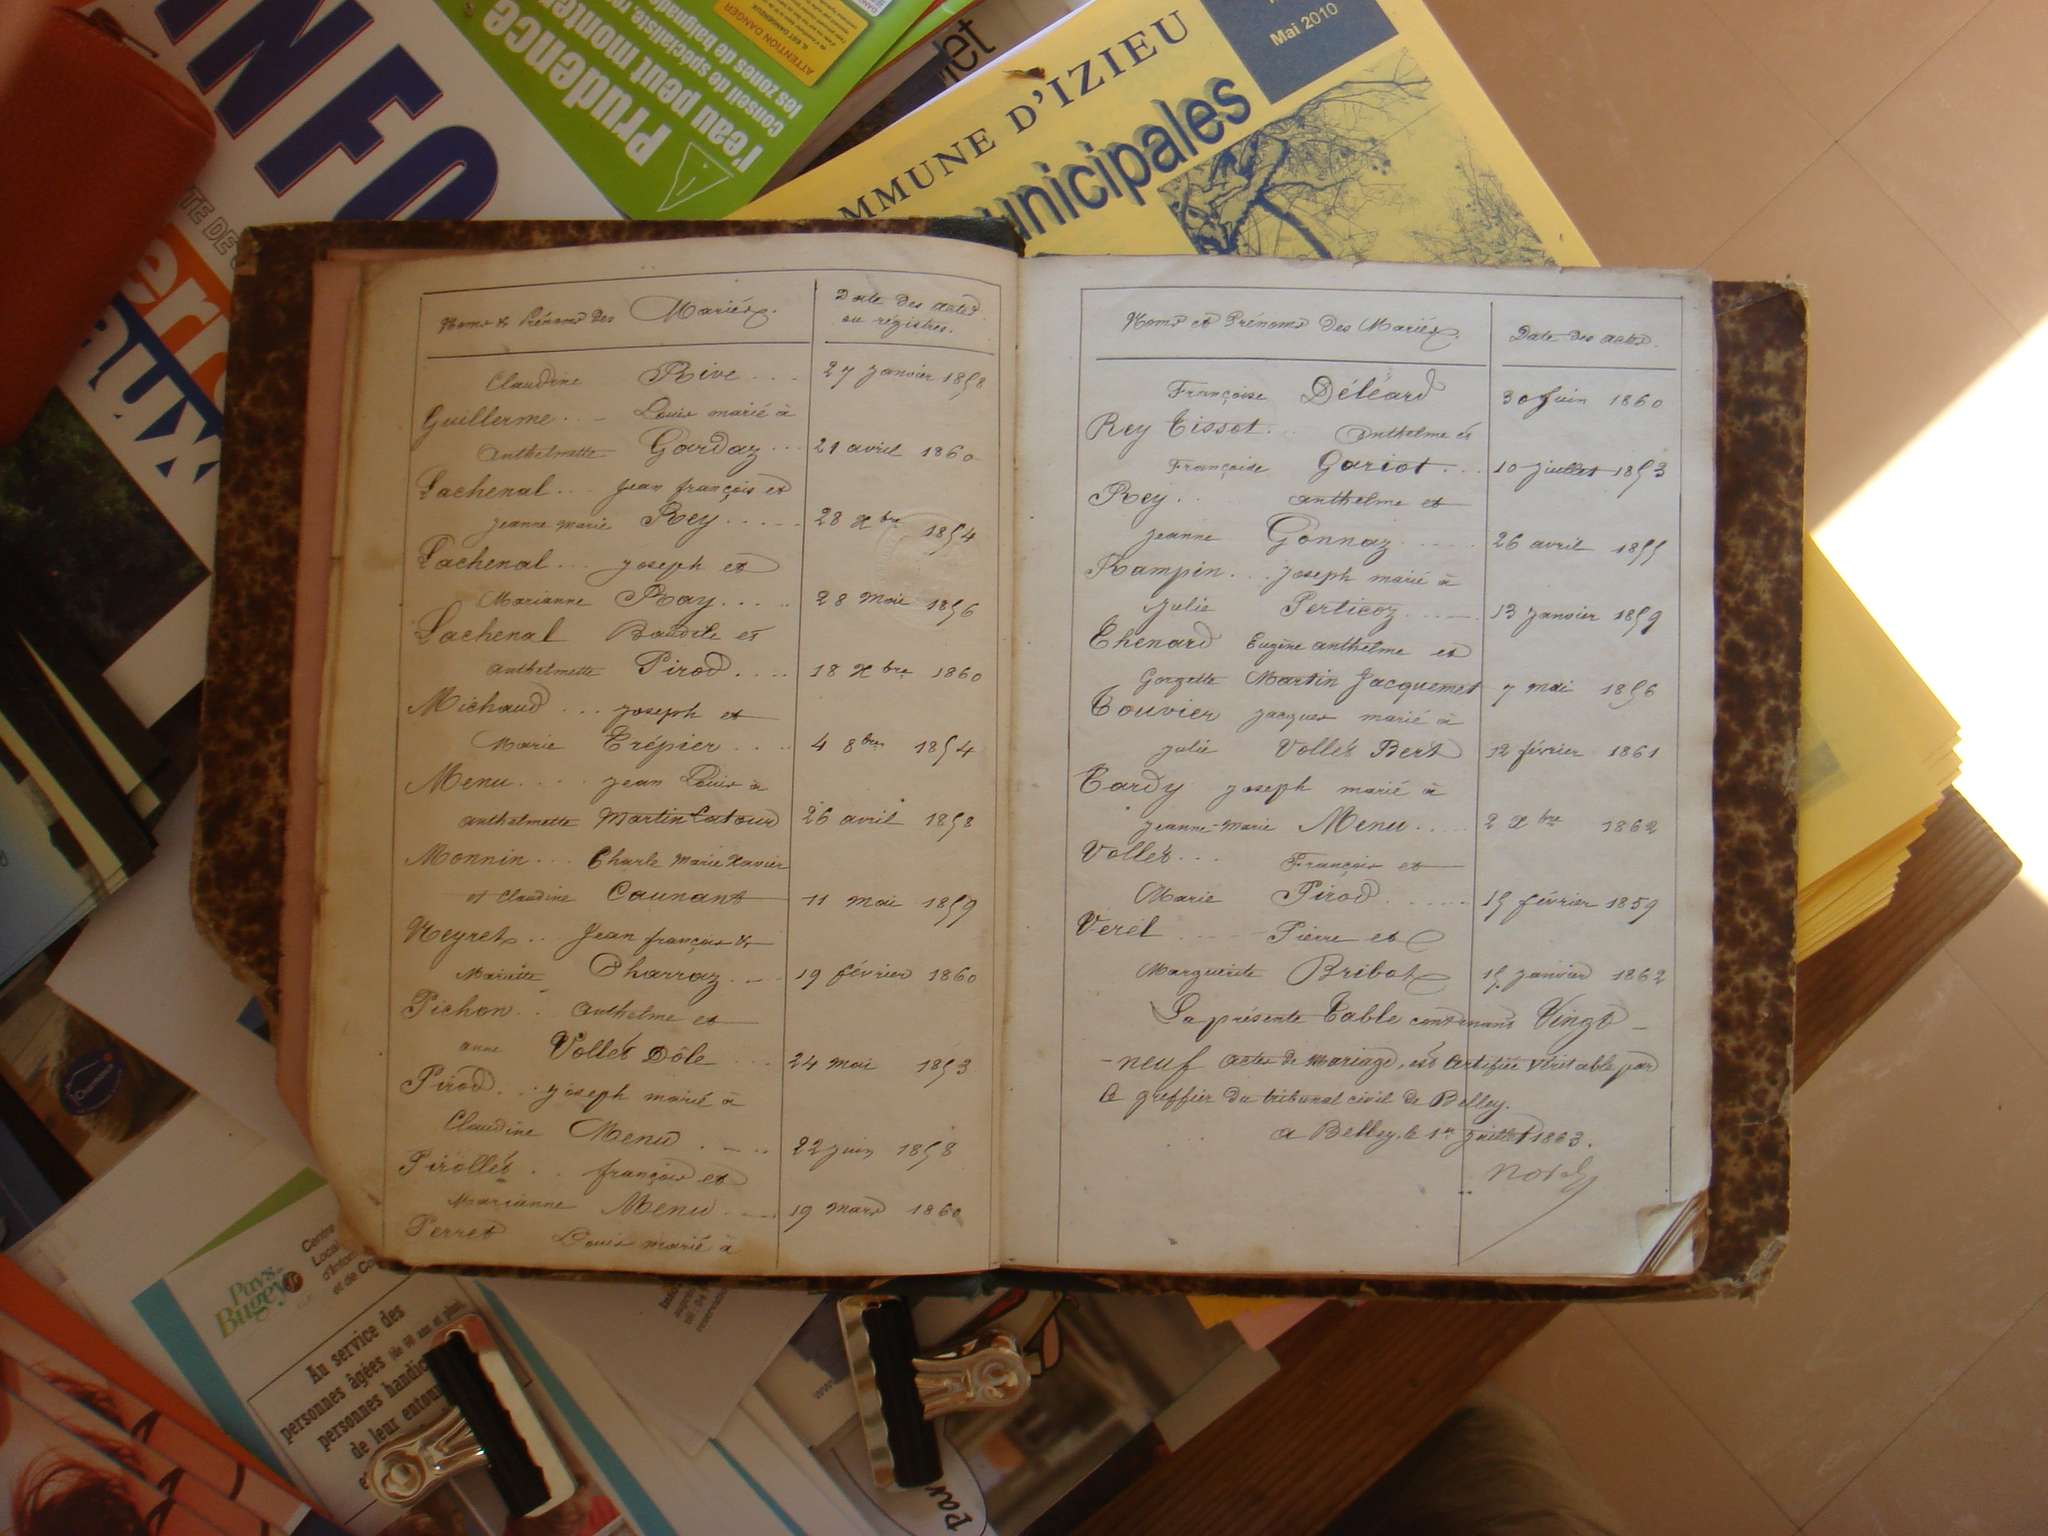 INFO
Prudence
l'eau peut monte
conseil de spécialiste, re
les zones de baignade
ATTENTION DANGER
MMUNE D'IZIEU
unicipales
Mai 2010
Noms & Prénoms des Mariés.
Date des actes
ou régistres.
Claudine Rive 27 Janvier 1858
Guillerme Louis marié à
Anthelmette Gardaz 21 avril 1860
Lachenal Jean françois et
Jeanne Marie Rey 28 Xbre 1854
Lachenal Joseph et
Marianne Ray 28 Mai 1856
Lachenal Baudile et
Anthelmette Pirod 18 Xbre 1860
Michaud Joseph et
Marie Trépier 4 8bre 1854
Menu Jean Louis à
Anthelmette Martin Latour 26 avril 1858
Monnin Charle Marie Xavier
et Claudine Caunant 11 mai 1859
Neyret Jean françois &
Mariette Charraz 19 février 1860
Pichon Anthelme et
anne Vollet Dôle 24 mai 1853
Pirod Joseph marié à
Claudine Menu 22 juin 1858
Pirollet françois et
Marianne Menu 19 mars 1860
Perret Louis marié à
Noms et Prénoms des Mariés
Date des actes.
Françoise Déléard 30 Juin 1860
Rey Tissot Anthelme et
Françoise Gariot 10 juillet 1853
Rey anthelme et
Jeanne Gonnaz 26 avril 1855
Rampin Joseph marié à
Julie Perticoz 13 Janvier 1859
Thenard Eugène anthelme et
Gorgette Martin Jacquemet 7 mai 1856
Touvier Jacques marié à
Julie Vollet Bert 12 février 1861
Tardy Joseph marié à
Jeanne-Marie Menu 2 Xbre 1862
Vollet François et
Marie Pirod 15 février 1859
Veret Pierre et
Marguerite Bribot 15 Janvier 1862
La présente Table contenant Vingt
-neuf actes de mariage, est certifiée véritable par
le greffier du tribunal civil de Belley.
a Belley, le 1er Juillet 1863.
Pays-
Bugey
Centre
Local
d'Infor
et de Co
Au service des
personnes âgées
personnes handic
de leur entour